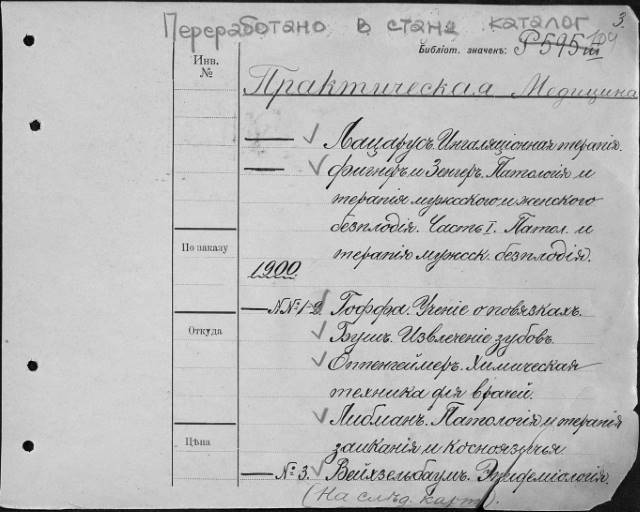 Переработано в стан. каталог
3.
Библіот. значекъ: P 595/III
104
Инв.
№
Практическая Медицина
— Лацарусъ. Ингаляціонная терапія.
— Фингеръ и Зенгеръ. Патологія и
терапія мужского и женского
безплодія. Часть I. Патол. и
терапія мужск. безплодія.
По заказу
1900
— №№ 1-2. Гоффа. Ученіе о повязкахъ.
Откуда
Бушъ. Извлеченіе зубовъ.
Оппенгеймеръ. Химическая
техника для врачей.
Либманъ. Патологія и терапія
заиканія и косноязычья.
Цѣна
— № 3. Вейхзельбаумъ. Эпидеміологія.
(На слѣд. карт.).